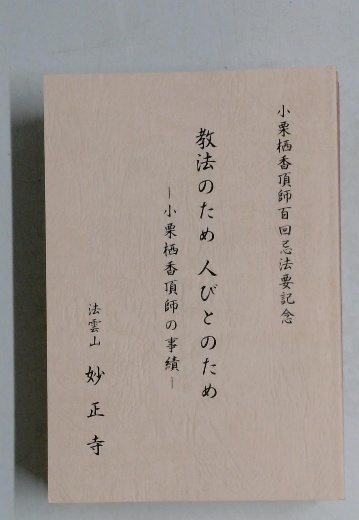 小栗栖香頂師百回忌法要記念
教法のため人びとのため
―小栗栖香頂師の事績―
法雲山 妙正寺